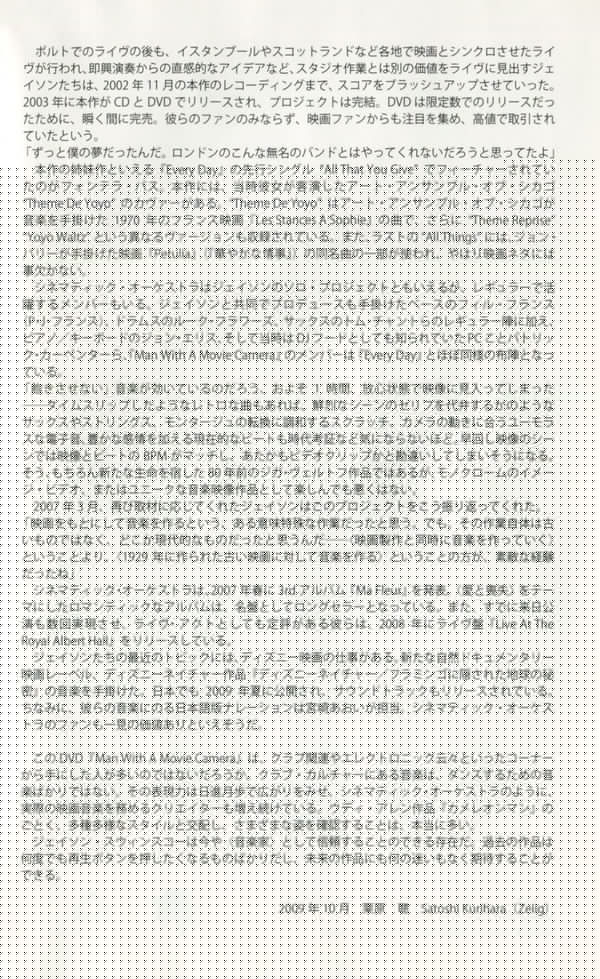 ポルトでのライヴの後も、イスタンブールやスコットランドなど各地で映画とシンクロさせたライ
ヴが行われ、即興演奏からの直感的なアイデアなど、スタジオ作業とは別の価値をライヴに見出すジェ
イソンたちは、2002 年 11 月の本作のレコーディングまで、スコアをブラッシュアップさせていった。
2003 年に本作が CD と DVD でリリースされ、プロジェクトは完結。DVD は限定数でのリリースだっ
たために、瞬く間に完売。彼らのファンのみならず、映画ファンからも注目を集め、高値で取引され
ていたという。
「ずっと僕の夢だったんだ。ロンドンのこんな無名のバンドとはやってくれないだろうと思ってたよ」
　本作の姉妹作といえる『Every Day』の先行シングル "All That You Give" でフィーチャーされてい
たのがフォンテラ・バス。本作には、当時彼女が客演したアート・アンサンブル・オブ・シカゴ
"Theme De Yoyo" のカヴァーがある。"Theme De Yoyo" はアート・アンサンブル・オブ・シカゴが
音楽を手掛けた 1970 年のフランス映画『Les Stances A Sophie』の曲で、さらに "Theme Reprise"
"Yoyo Waltz" という異なるヴァージョンも収録されている。また、ラストの "All Things" には、ジョン・
バリーが手掛けた映画『Petulia』(『華やかな情事』) の同名曲の一部が使われ、やはり映画ネタには
事欠かない。
　シネマティック・オーケストラはジェイソンのソロ・プロジェクトともいえるが、レギュラーで活
躍するメンバーもいる。ジェイソンと共同でプロデュースも手掛けたベースのフィル・フランス
(P.J・フランス)、ドラムスのルーク・フラワーズ、サックスのトム・チャントらのレギュラー陣に加え、
ピアノ／キーボードのジョン・エリス、そして当時は DJ フードとしても知られていた PC ことパトリッ
ク・カーペンターら、『Man With A Movie Camera』のメンバーは『Every Day』とほぼ同様の布陣となっ
ている。
「飽きさせない」音楽が効いているのだろう、およそ 1 時間、放心状態で映像に見入ってしまった
――タイムスリップしたようなレトロな曲もあれば、鮮烈なシーンのセリフを代弁するがのような
サックスやストリングス、モンタージュの転換に調和するスクラッチ、カメラの動きに合うユーモラ
スな電子音、豊かな感情を加える現在的なビートも時代考証など気にならないほど。早回し映像のシー
ンでは映像とビートの BPM がマッチし、あたかもビデオクリップかと勘違いしてしまいそうになる。
そう、もちろん新たな生命を宿した 80 年前のジガ・ヴェルトフ作品ではあるが、モノクロームのイメー
ジ・ビデオ、またはユニークな音楽映像作品として楽しんでも悪くはない。
　2007 年 3 月、再び取材に応じてくれたジェイソンはこのプロジェクトをこう振り返ってくれた。
「映像をもとにして音楽を作るという、ある意味特殊な作業だったと思う。でも、その作業自体は古
いものではなく、どこか現代的なものだったと思うんだ――〈映画製作と同時に音楽を作っていく〉
ということより、〈1929 年に作られた古い映画に対して音楽を作る〉ということの方が、素敵な経験
だったね」
　シネマティック・オーケストラは、2007 年春に 3rd アルバム『Ma Fleur』を発表。〈愛と喪失〉をテー
マにしたロマンティックなアルバムは、名盤としてロングセラーとなっている。また、すでに来日公
演も数回実現させ、ライヴ・アクトとしても定評がある彼らは、2008 年にライヴ盤『Live At The
Royal Albert Hall』をリリースしている。
　ジェイソンたちの最近のトピックには、ディズニー映画の仕事がある。新たな自然ドキュメンタリー
映画レーベル、ディズニーネイチャー作品『ディズニーネイチャー／フラミンゴに隠された地球の秘
密』の音楽を手掛けた。日本でも 2009 年夏に公開され、サウンドトラックもリリースされている。
ちなみに、彼らの音楽にのる日本語版ナレーションは宮﨑あおいが担当。シネマティック・オーケス
トラのファンも一見の価値ありといえそうだ。
　この DVD『Man With A Movie Camera』は、クラブ関連やエレクトロニック云々といったコーナー
から手にした人が多いのではないだろうか。クラブ・カルチャーにある音楽は、ダンスするための音
楽ばかりではない。その表現力は日進月歩で広がりをみせ、シネマティック・オーケストラのように、
実際の映画音楽を務めるクリエイターも増え続けている。ウディ・アレン作品『カメレオンマン』の
ごとく、多種多様なスタイルと交配し、さまざまな姿を確認することは、本当に多い。
　ジェイソン・スウィンスコーは今や〈音楽家〉として信頼することのできる存在だ。過去の作品は
何度でも再生ボタンを押したくなるものばかりだし、未来の作品にも何の迷いもなく期待することが
できる。
2009 年 10 月　栗原　聰　Satoshi Kurihara（Zelig）